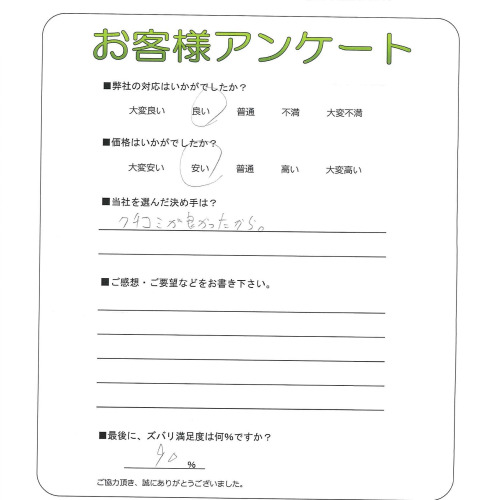 お客様アンケート
■弊社の対応はいかがでしたか？
大変良い 良い 普通 不満 大変不満
■価格はいかがでしたか？
大変安い 安い 普通 高い 大変高い
■当社を選んだ決め手は？
クチコミが良かったから。
■ご感想・ご要望などをお書き下さい。
■最後に、ズバリ満足度は何%ですか？
90 %
ご協力頂き、誠にありがとうございました。